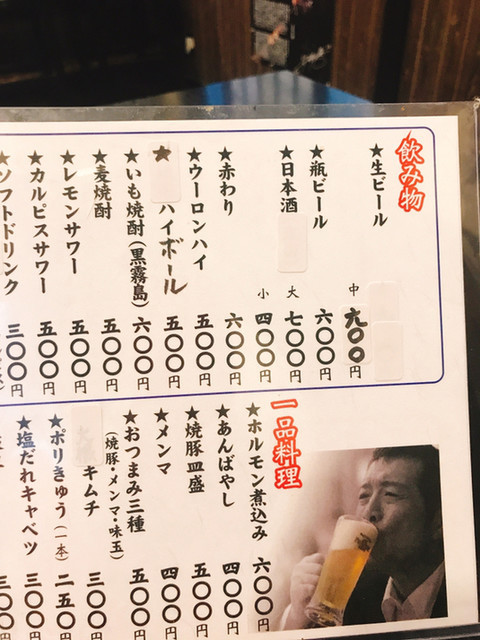 飲み物
★生ビール 中 六〇〇円
★瓶ビール 六〇〇円
★日本酒 大 七〇〇円
小 四〇〇円
★赤わり 六〇〇円
★ウーロンハイ 五〇〇円
★ハイボール 五〇〇円
★いも焼酎(黒霧島) 六〇〇円
★麦焼酎 五〇〇円
★レモンサワー 五〇〇円
★カルピスサワー 五〇〇円
★ソフトドリンク 三〇〇円
一品料理
★ホルモン煮込み 六〇〇円
★あんばやし 四〇〇円
★焼豚皿盛 五〇〇円
★メンマ 四〇〇円
★おつまみ三種 五〇〇円
(焼豚・メンマ・味玉)
キムチ 三〇〇
★ポリきゅう(一本) 二五〇
★塩だれキャベツ 三〇〇